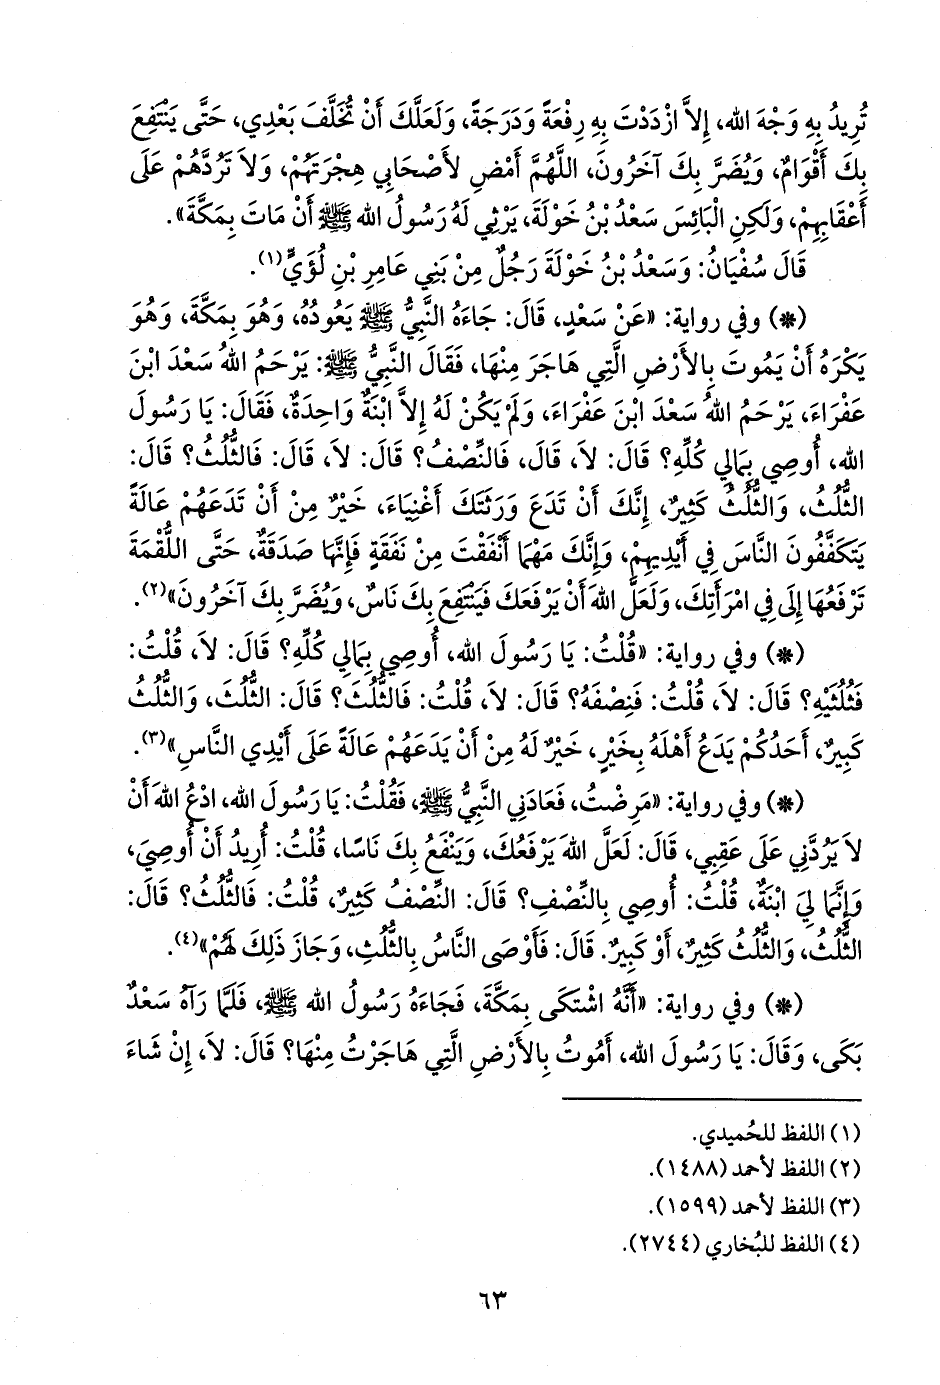 تُرِيدُ بِهِ وَجْهَ الله، إِلاَّ ازْدَدْتَ بِهِ رِفْعَةً وَدَرَجَةً، وَلَعَلَّكَ أَنْ تُخَلَّفَ بَعْدِي، حَتَّى يَنْتَفِعَ
بِكَ أَقْوَامٌ، وَيُضَرَّ بِكَ آخَرُونَ، اللَّهُمَّ أَمْضِ لأَصْحَابِي هِجْرَتَهُمْ، وَلاَ تَرُدَّهُمْ عَلَى
أَعْقَابِهِمْ، وَلَكِنِ الْبَائِسَ سَعْدُ بْنُ خَوْلَةَ، يَرْثِي لَهُ رَسُولُ الله ﷺ أَنْ مَاتَ بِمَكَّةَ».
قَالَ سُفْيَانُ: وَسَعْدُ بْنُ خَوْلَةَ رَجُلٌ مِنْ بَنِي عَامِرِ بْنِ لُؤَيٍّ(١).
(*) وفي رواية: «عَنْ سَعْدٍ، قَالَ: جَاءَهُ النَّبِيُّ ﷺ يَعُودُهُ، وَهُوَ بِمَكَّةَ، وَهُوَ
يَكْرَهُ أَنْ يَمُوتَ بِالأَرْضِ الَّتِي هَاجَرَ مِنْهَا، فَقَالَ النَّبِيُّ ﷺ: يَرْحَمُ اللهُ سَعْدَ ابْنَ
عَفْرَاءَ، يَرْحَمُ اللهُ سَعْدَ ابْنَ عَفْرَاءَ، وَلَمْ يَكُنْ لَهُ إِلاَّ ابْنَةٌ وَاحِدَةٌ، فَقَالَ: يَا رَسُولَ
الله، أُوصِي بِمَالِي كُلِّهِ؟ قَالَ: لاَ، قَالَ، فَالنِّصْفُ؟ قَالَ: لاَ، قَالَ: فَالثُّلُثُ؟ قَالَ:
الثُّلُثُ، وَالثُّلُثُ كَثِيرٌ، إِنَّكَ أَنْ تَدَعَ وَرَثَتَكَ أَغْنِيَاءَ، خَيْرٌ مِنْ أَنْ تَدَعَهُمْ عَالَةً
يَتَكَفَّفُونَ النَّاسَ فِي أَيْدِيهِمْ، وَإِنَّكَ مَهْمَا أَنْفَقْتَ مِنْ نَفَقَةٍ فَإِنَّهَا صَدَقَةٌ، حَتَّى اللُّقْمَةَ
تَرْفَعُهَا إِلَى فِي امْرَأَتِكَ، وَلَعَلَّ اللهَ أَنْ يَرْفَعَكَ فَيَنْتَفِعَ بِكَ نَاسٌ، وَيُضَرَّ بِكَ آخَرُونَ»(٢).
(*) وفي رواية: «قُلْتُ: يَا رَسُولَ الله، أُوصِي بِمَالِي كُلِّهِ؟ قَالَ: لاَ، قُلْتُ:
فَثُلُثَيْهِ؟ قَالَ: لاَ، قُلْتُ: فَنِصْفَهُ؟ قَالَ: لاَ، قُلْتُ: فَالثُّلُثَ؟ قَالَ: الثُّلُثَ، وَالثُّلُثُ
كَبِيرٌ، أَحَدُكُمْ يَدَعُ أَهْلَهُ بِخَيْرٍ، خَيْرٌ لَهُ مِنْ أَنْ يَدَعَهُمْ عَالَةً عَلَى أَيْدِي النَّاسِ»(٣).
(*) وفي رواية: «مَرِضْتُ، فَعَادَنِي النَّبِيُّ ﷺ، فَقُلْتُ: يَا رَسُولَ الله، ادْعُ اللهَ أَنْ
لاَ يَرُدَّنِي عَلَى عَقِبِي، قَالَ: لَعَلَّ اللهَ يَرْفَعُكَ، وَيَنْفَعُ بِكَ نَاسًا، قُلْتُ: أُرِيدُ أَنْ أُوصِيَ،
وَإِنَّمَا لِيَ ابْنَةٌ، قُلْتُ: أُوصِي بِالنِّصْفِ؟ قَالَ: النِّصْفُ كَثِيرٌ، قُلْتُ: فَالثُّلُثُ؟ قَالَ:
الثُّلُثُ، وَالثُّلُثُ كَثِيرٌ، أَوْ كَبِيرٌ. قَالَ: فَأَوْصَى النَّاسُ بِالثُّلُثِ، وَجَازَ ذَلِكَ لَهُمْ»(٤).
(*) وفي رواية: «أَنَّهُ اشْتَكَى بِمَكَّةَ، فَجَاءَهُ رَسُولُ الله ﷺ، فَلَمَّا رَآهُ سَعْدٌ
بَكَى، وَقَالَ: يَا رَسُولَ الله، أَمُوتُ بِالأَرْضِ الَّتِي هَاجَرْتُ مِنْهَا؟ قَالَ: لاَ، إِنْ شَاءَ
(١) اللفظ للحُميدي.
(٢) اللفظ لأحمد (١٤٨٨).
(٣) اللفظ لأحمد (١٥٩٩).
(٤) اللفظ للبُخاري (٢٧٤٤).
٦٣